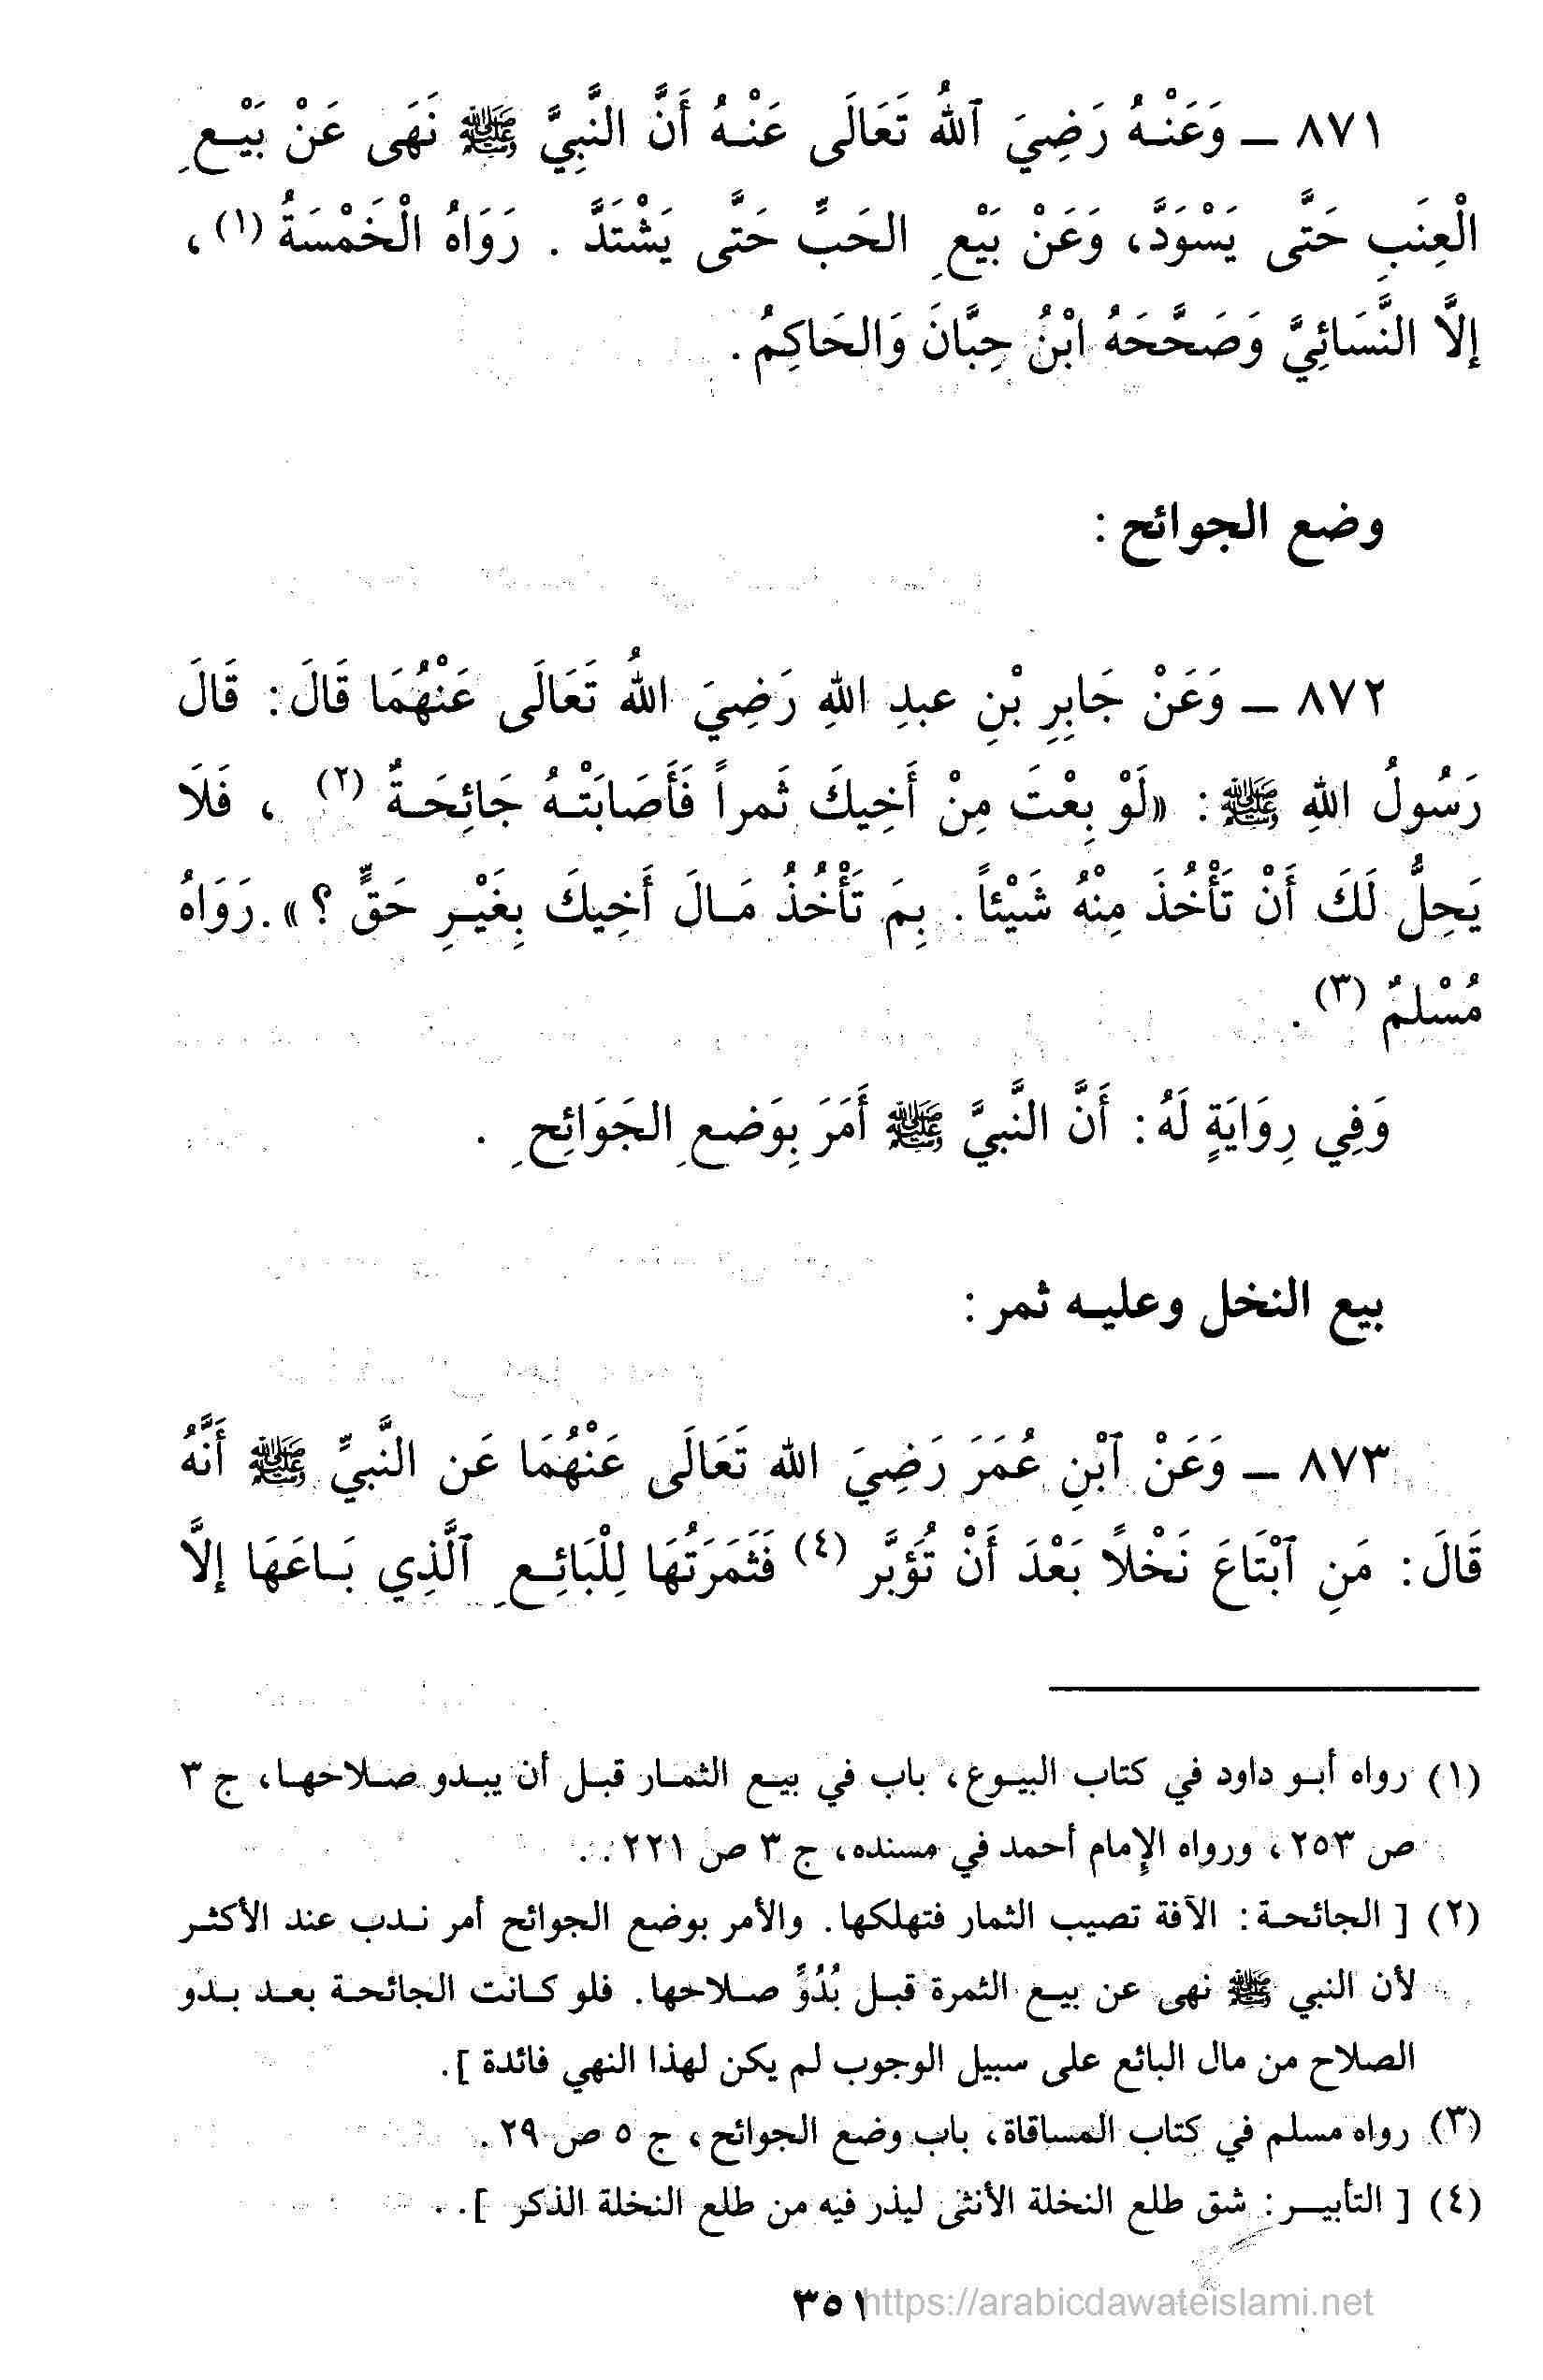 ٨٧١ ــ وَعَنْـهُ رَضِيَ ٱللهُ تَعَالَى عَنْـهُ أَنَّ النَّبِيَّ ﷺ نَهَى عَنْ بَيْـعِ
الْعِنَبِ حَتَّى يَسْوَدَّ، وَعَنْ بَيْعِ الحَبِّ حَتَّى يَشْتَدَّ . رَوَاهُ الْخَمْسَةُ (١) ،
إلَّا النَّسَائِيَّ وَصَحَّحَهُ ابْنُ حِبَّانَ وَالحَاكِمُ .
وضع الجوائح :
٨٧٢ ــ وَعَنْ جَابِرِ بْنِ عبدِ اللهِ رَضِيَ اللهُ تَعَالَى عَنْهُمَا قَالَ: قَالَ
رَسُولُ اللهِ ﷺ : «لَوْ بِعْتَ مِنْ أَخِيكَ ثَمراً فَأَصَابَتْـهُ جَائِحَـةٌ (٢) ، فَلَا
يَحِلُّ لَكَ أَنْ تَأْخُذَ مِنْهُ شَيْئاً . بِمَ تَأْخُذُ مَـالَ أَخِيكَ بِغَيْـرِ حَقٍّ ؟ ». رَوَاهُ
مُسْلمٌ (٣) .
وَفِي رِوَايَةٍ لَهُ : أَنَّ النَّبيَّ ﷺ أَمَرَ بِوَضعِ الجَوَائِحِ .
بيع النخل وعليـه ثمر :
٨٧٣ ــ وَعَنْ ٱبْنِ عُمَرَ رَضِيَ الله تَعَالَى عَنْهُمَا عَن النَّبيِّ ﷺ أَنَّهُ
قَالَ : مَنِ ٱبْتَاعَ نَخْلاً بَعْدَ أَنْ تُؤبَّر (٤) فَثَمَرَتُهَا لِلْبَائِـعِ ٱلَّذِي بَـاعَهَا إلاَّ
(١) رواه أبـو داود في كتاب البيـوع، باب في بيـع الثمـار قبـل أن يبـدو صـلاحهـا، ج ٣
ص ٢٥٣ ، ورواه الإمام أحمد في مسنده، ج ٣ ص ٢٢١ .
(٢) [ الجائحـة : الآفة تصيب الثمار فتهلكها. والأمر بوضع الجوائح أمر نـدب عند الأكثـر
لأن النبي ﷺ نهى عن بيـع الثمرة قبـل بُدُوِّ صـلاحها. فلو كـانت الجائحـة بعـد بـدو
الصلاح من مال البائع على سبيل الوجوب لم يكن لهذا النهي فائدة ].
(٣) رواه مسلم في كتاب المساقاة، باب وضع الجوائح، ج ٥ ص ٢٩ .
(٤) [ التأبيــر : شق طلع النخلة الأنثى ليذر فيه من طلع النخلة الذكر ].
٣٥١
https://arabicdawateislami.net